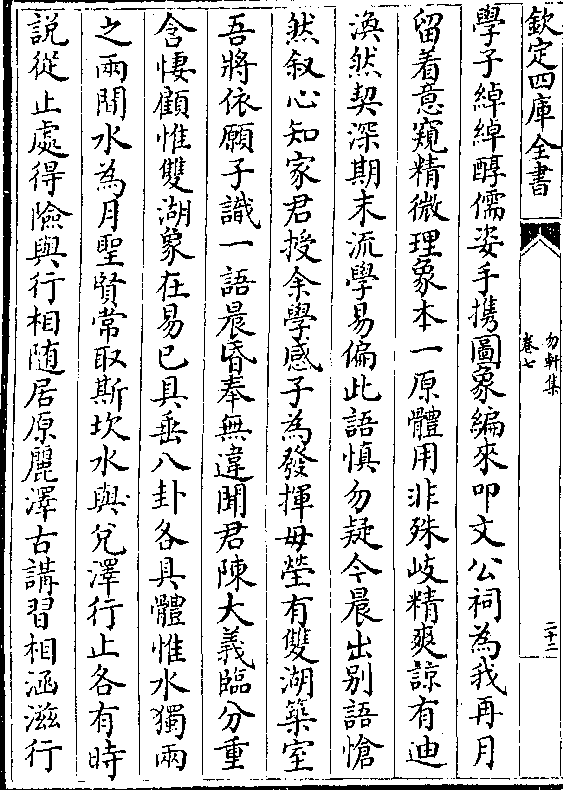 欽定四庫全書
勿軒集
卷七
二十二
學子綽綽醇儒姿手攜圖象編來叩文公祠為我再月
留着意窺精微理象本一原體用非殊岐精爽諒有迪
渙然契深期末流學易偏此語慎勿疑今晨出别語愴
然叙心知家君授余學感子為發揮毋塋有雙湖築室
吾將依願子識一語晨昏奉無違聞君陳大義臨分重
含悽顧惟雙湖象在易已具垂八卦各具體惟水獨兩
之兩間水為月聖賢常取斯坎水與兌澤行止各有時
説從止處得險與行相随居原麗澤古講習相涵滋行